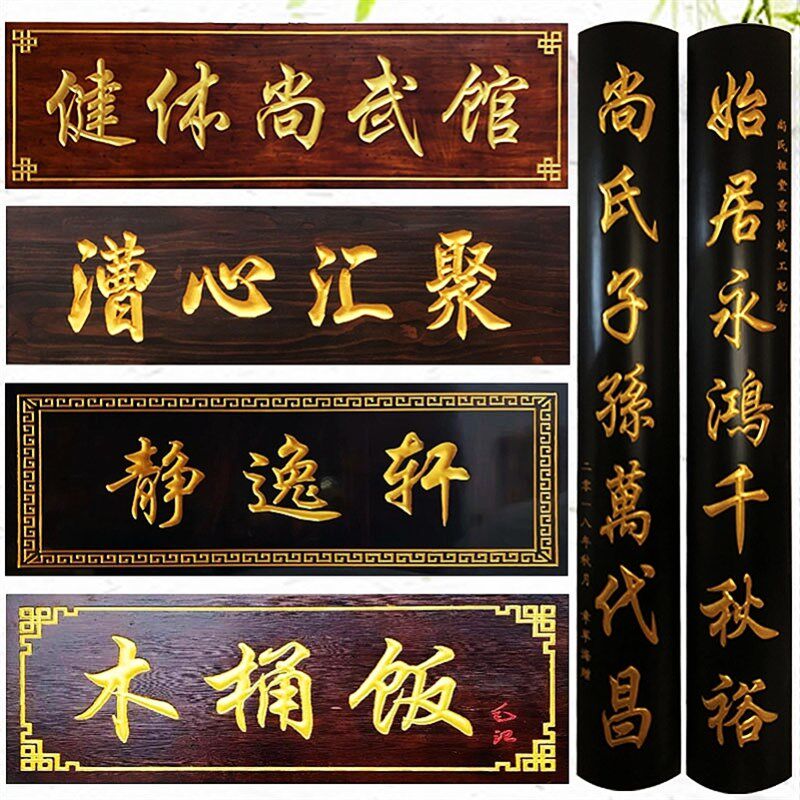 健体尚武馆
漕心汇聚
静逸轩
木桶饭
始居永鸿千秋裕
尚氏祖堂重修竣工纪念
尚氏子孫萬代昌
二零一八年秋月